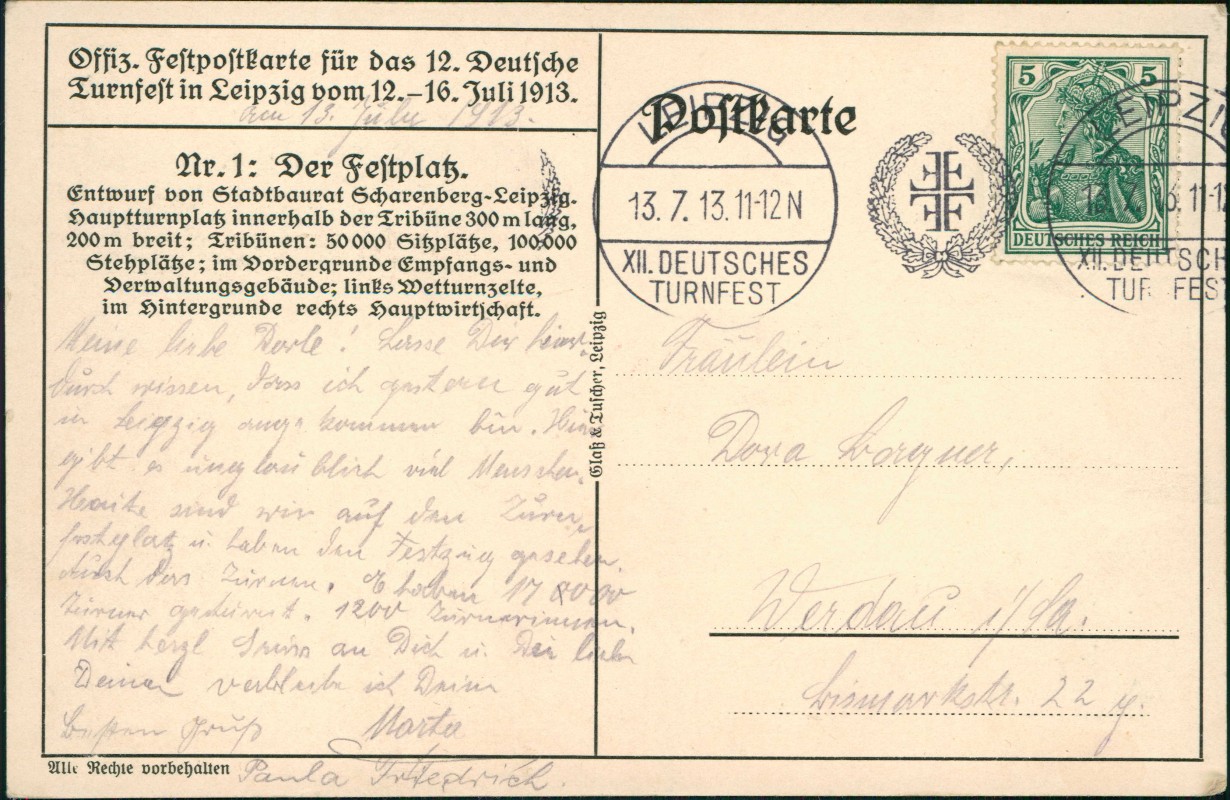 Offiz. Festpostkarte für das 12. Deutsche
Turnfest in Leipzig vom 12.–16. Juli 1913.
am 13. July 1913.
Nr. 1: Der Festplatz.
Entwurf von Stadtbaurat Scharenberg-Leipzig.
Hauptturnplatz innerhalb der Tribüne 300 m lang,
200 m breit; Tribünen: 50 000 Sitzplätze, 100 000
Stehplätze; im Vordergrunde Empfangs- und
Verwaltungsgebäude; links Wetturnzelte,
im Hintergrunde rechts Hauptwirtschaft.
Meine liebe Dorle! Lasse Dir hier-
durch wissen, dass ich gestern gut
in Leipzig angekommen bin. Hier
gibt es unglaublich viel Menschen.
Heute sind wir auf den Turn-
festplatz u. haben den Festzug gesehen.
Auch das Turnen. Es haben 17 000
Turner geturnt. 1200 Turnerinnen.
Mit herzl Gruss an Dich u. Die lieben
Deinen verbleibe ich Deine
Besten Gruß Marta
Paula Friedrich.
Alle Rechte vorbehalten
Glaß & Tuscher, Leipzig
Postkarte
LEIPZIG
13. 7. 13. 11-12 N
XII. DEUTSCHES
TURNFEST
5 5
DEUTSCHES REICH
LEIPZI
13. 7. 13. 11-1
XII. DEUTSCH
TURNFES
Fräulein
Dora
Werdau i/Sa.
Bismarkstr. 22